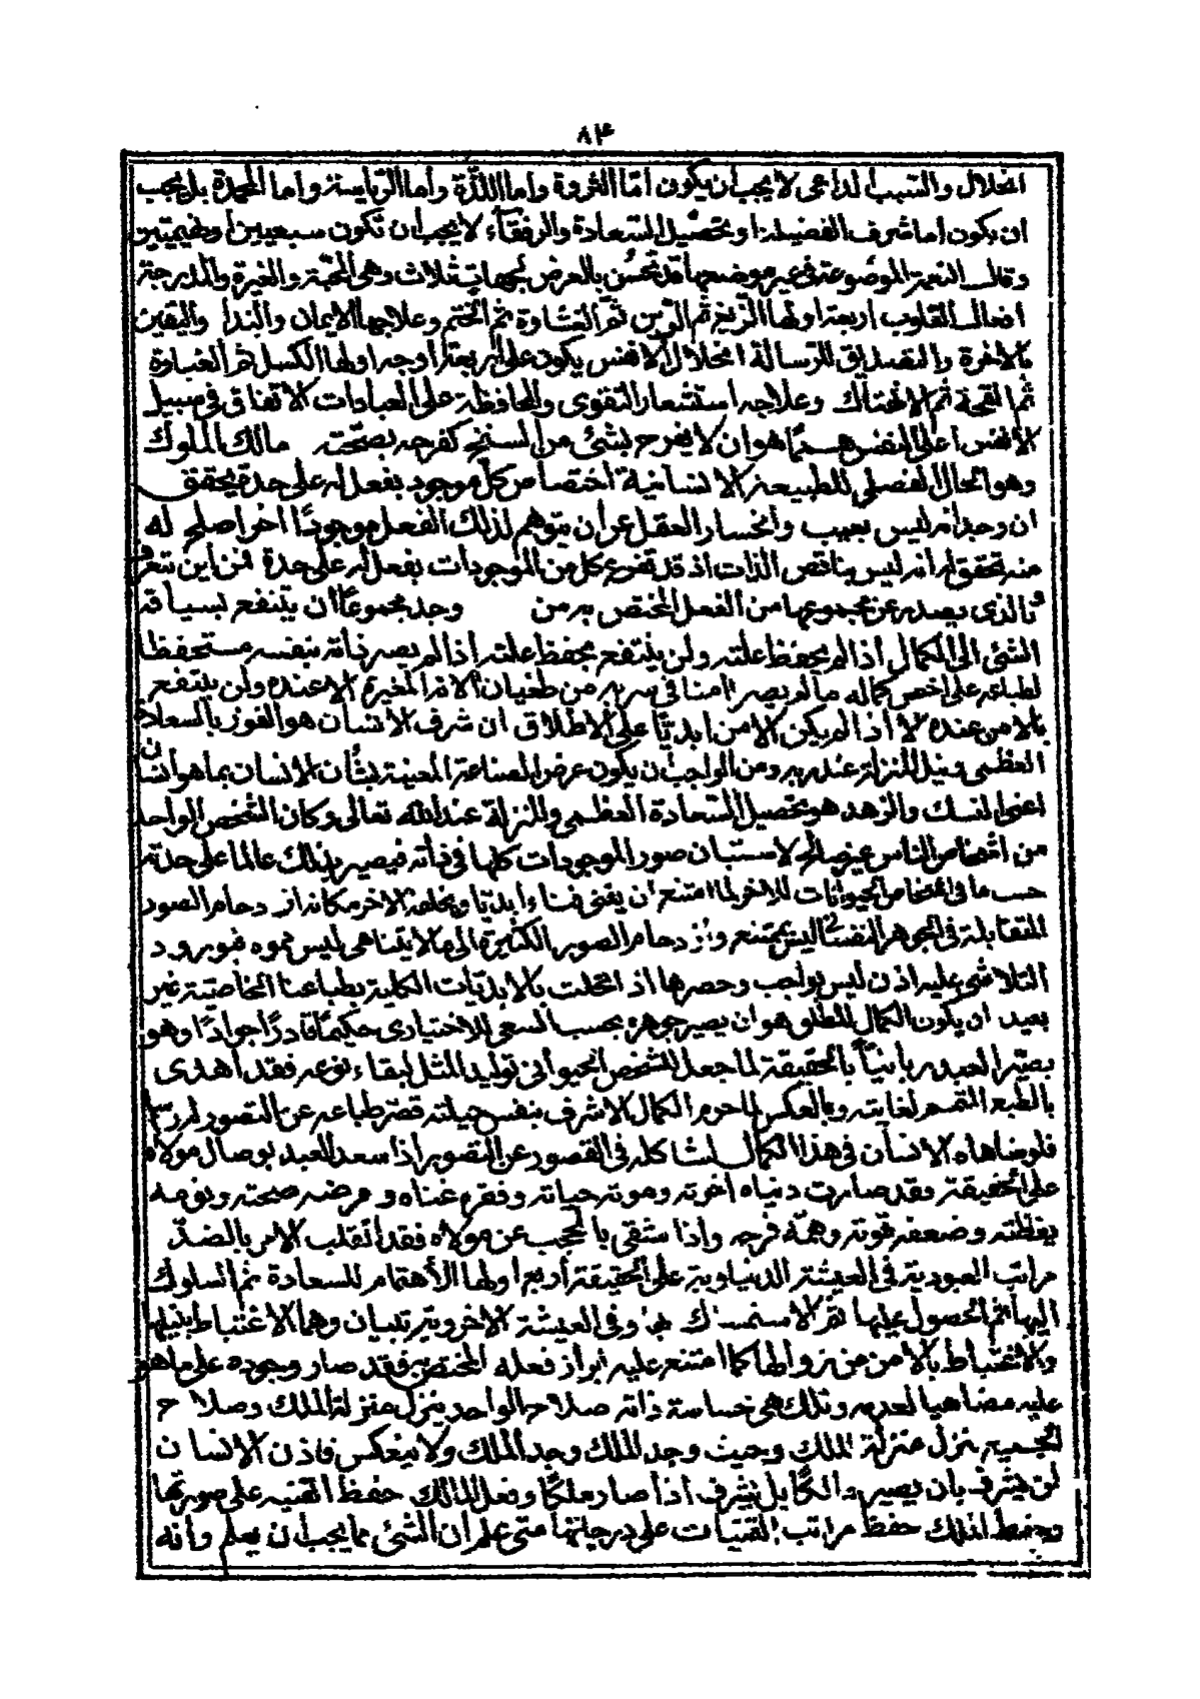 ٨٣
انحلال والسبب الداعى لا يجب ان يكون اما الثروة واما اللذة واما الرياسة واما المحمدة بل يجب
ان يكون اما شرف الفضيلة او تحصيل السعادة والرفقاء لا يجب ان تكون سبعيين او بهيميين
وقال النعمة الموضوعة فى غير موضعها قد تحسن بالعرض لجهات ثلاث وهى المحبة والغيرة والدرجة
افعال القلوب اربعة اولها الزيغ ثم الرين ثم الغشاوة ثم الختم وعلاجها الايمان والبدأ واليقين
بالاخرة والتصديق للرسالة انحلال الانفس يكون على اربعة اوجه اولها الكسل ثم الغباوة
ثم القحة ثم الانهتاك وعلاجه استشعار التقوى والمحافظة على العبادات الانفاق فى سبيل
الانفس اعلى النفس هو ان لا يفرح بشئ من كفرحه بصحته مالك الملوك
وهو الحال الفصلى للطبيعة الانسانية اختصاص كل موجود بفعل له على حدة يحقق
ان وحيزانه ليس بعيب وانحسار العقل عن ان يتوهم لذلك الفعل موجودا اخر اصلح له
منه تحقق له انه ليس بناقص الذات اذ قد تفرع كل من الموجودات بفعل له على حدة فمن اين تتفرع
فالذى يصدر عن مجموعها من الفعل المختص به من وجد مجموعا ان ينتفع بسياقة
الشئ الى الكمال اذا لم يحفظ علته ولن ينتفع بحفظ علته اذا لم يصر ذاته بنفسه مستحفظا
لطباعه على اخص كماله ما لم يصر امنا فى سربه من طغيان الافة المغيرة لاعنده ولن ينتفع
بالامن عنده لا اذا لم يكن الامن ابديا على الاطلاق ان شرف الانسان هو الفوز بالسعادة
العظمى ونيل المنزلة عند ربه ومن الواجب ان يكون غرض الصناعة المعينة بشأن الانسان بما هو انسان
اعنى النسك والزهد هو تحصيل السعادة العظمى والمنزلة عند الله تعالى وكان الشخص الواحد
من اشخاص الناس لاستبان صور الموجودات كلها فى ذاته فيصير بذلك عالما على حدته
حسب ما فى اشخاص الحيوانات الاخر لما امتنع ان يفنى فناء ابديا ويخلفه الاخر مكانه ازدحام الصور
المتقابلة فى الجوهر النفسانى ليس بممتنع وازدحام الصور الكثيرة الى ما لا يتناهى ليس بموه فورود
التلاشى عليه اذن ليس بواجب وحصرها اذ انحلت بالابديات الكلية بطباعنا الخاصية غير
بعيد ان يكون الكمال المطلق هو ان يصير جوهره بحسب السعى الاختيارى حكيما قادرا جوادا وهو
بصير العبد ربانيا بالحقيقة لما جعل الشخص الحيوانى توليد المثل لبقاء نوعه فقد اهدى
بالطبع لغايته وبالعكس لما حرم الكمال الاشرف بنفس جبلته قصر طباعه عن التصور له
فلو ضاهاه الانسان فى هذا الكمال لشاكله فى القصور عن التصور اذا سعد العبد بوصال مولاه
على الحقيقة فقد صارت دنياه اخرته وموته حياته وفقره غناه ومرضه صحته ونومه
يقظته وضعفه قوته وهمه فرحه واذا شقى بالحجب عن مولاه فقد انقلب الامر بالضد
مراتب العبودية فى العيشة الدنياوية على الحقيقة اربع اولها الاهتمام للسعادة ثم السلوك
اليها ثم الحصول عليها ثم الاستمساك بها وفى العيشة الاخروية رتبتان وهما الاغتباط بنيلها
والاغتباط بالامن من زوالها كما امتنع عليه ابراز فعله المختص به فقد صار وجوده على ما هو
عليه مضاهيا لعدمه وتلك هى خساسة ذاته صلاح الواحد ينزل منزلة الملك وصلاح
الجميع ينزل منزلة الملك وحيث وجد الملك وجد الملك ولا ينعكس فاذن الانسان
لن يشرف بان يصير والكامل يشرف اذا صار ملكا وفعل المالك حفظ القنية على صورتها
وحفظ الملك حفظ مراتب القنيات على درجاتها متى علم ان الشئ مما يجب ان يعلم وانه